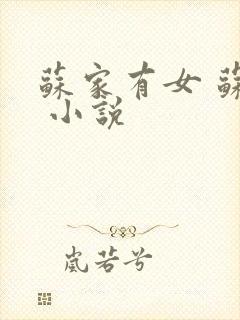 蘇家有女 蘇
小說
嵐若兮